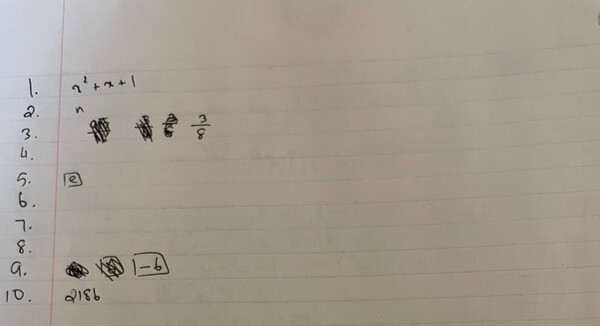 1. x² + x + 1
2. n
3. 3/8
4.
5. e
6.
7.
8.
9. 1-b
10. 2186